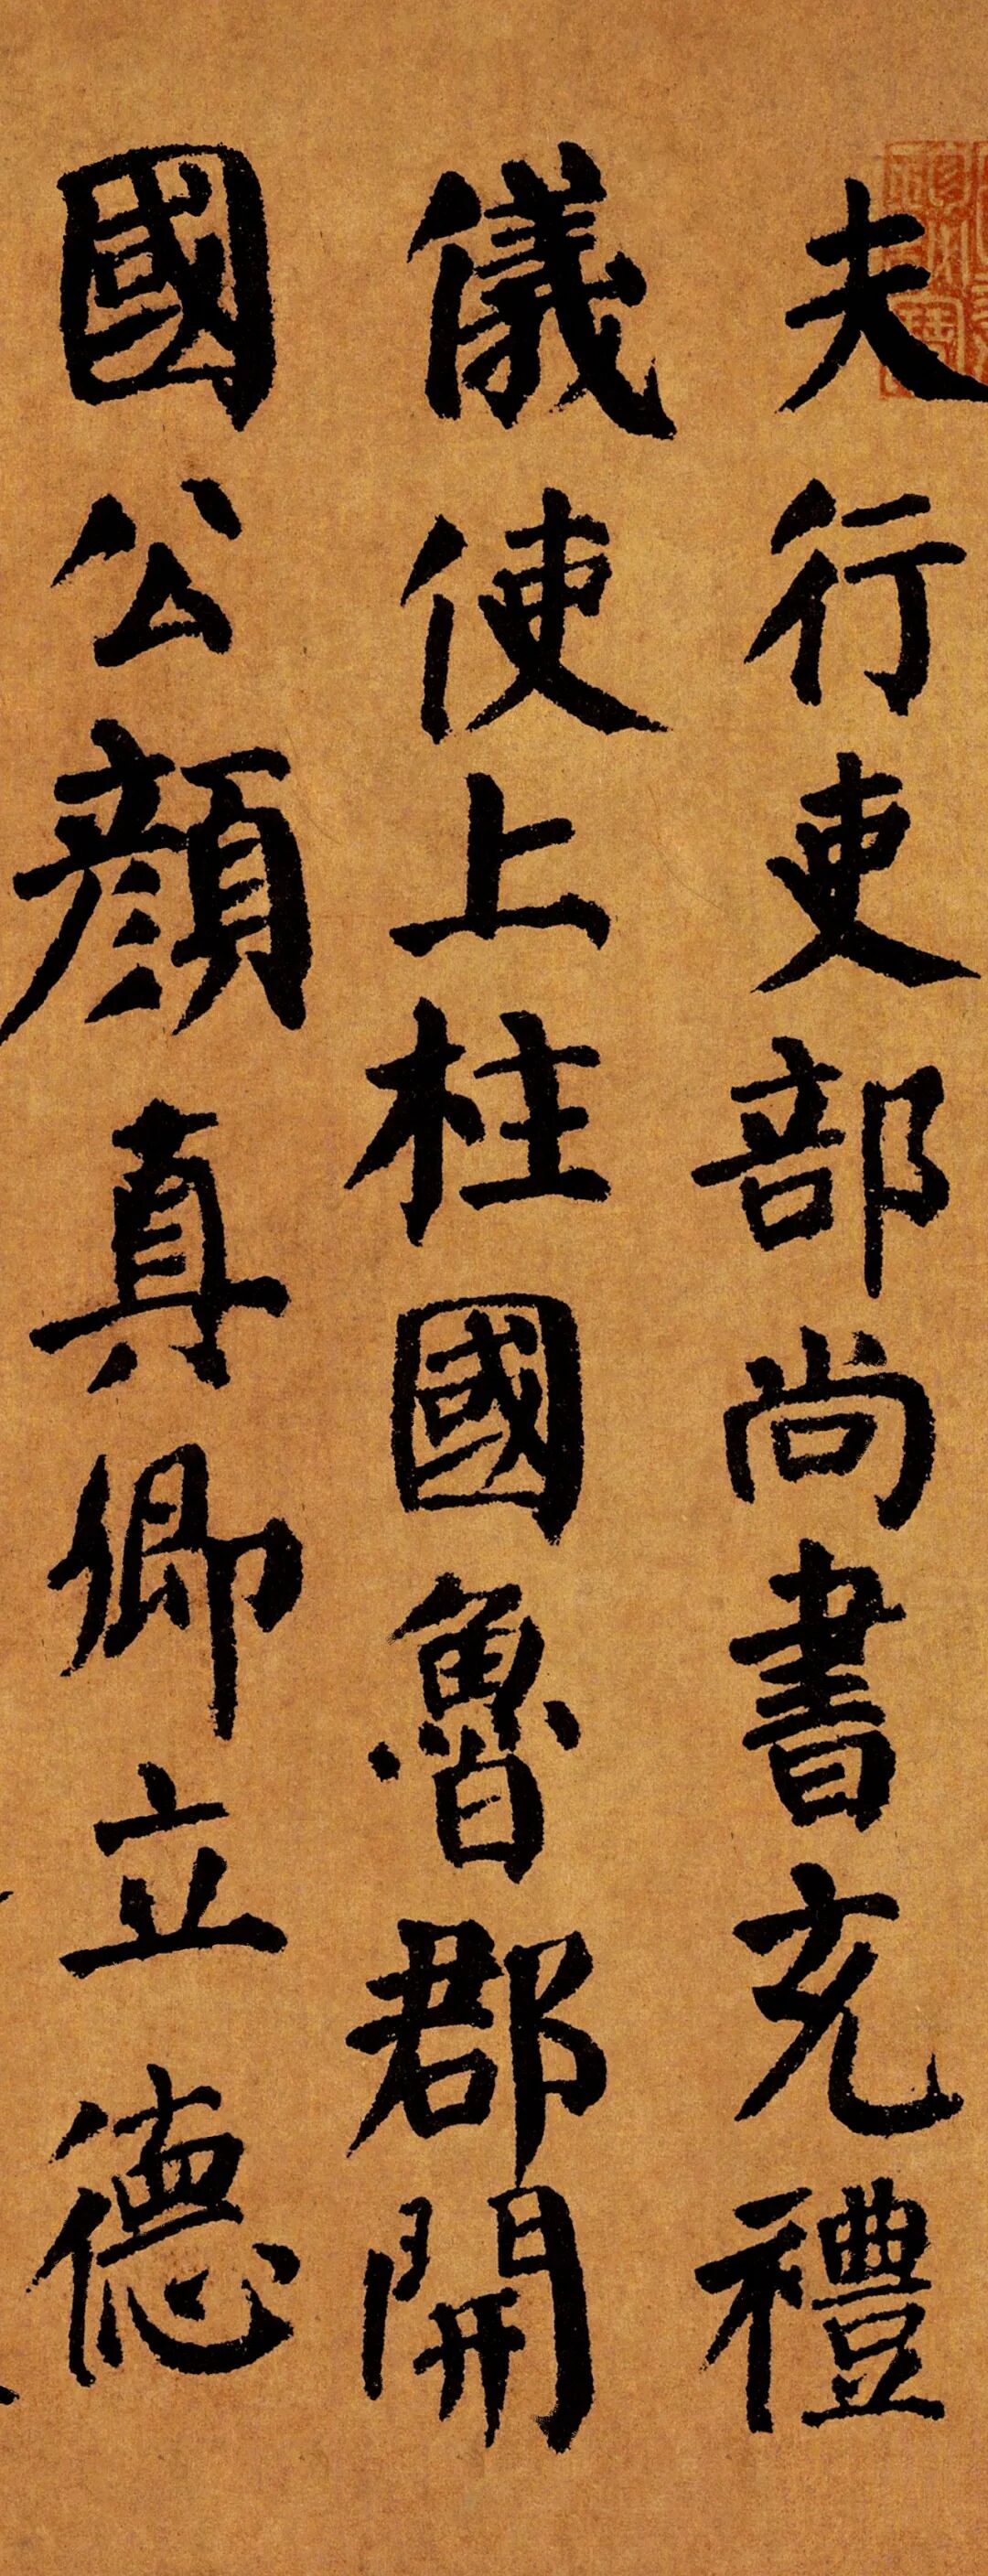 夫行吏部尚書充禮
儀使上柱國魯郡開
國公顏真卿立德